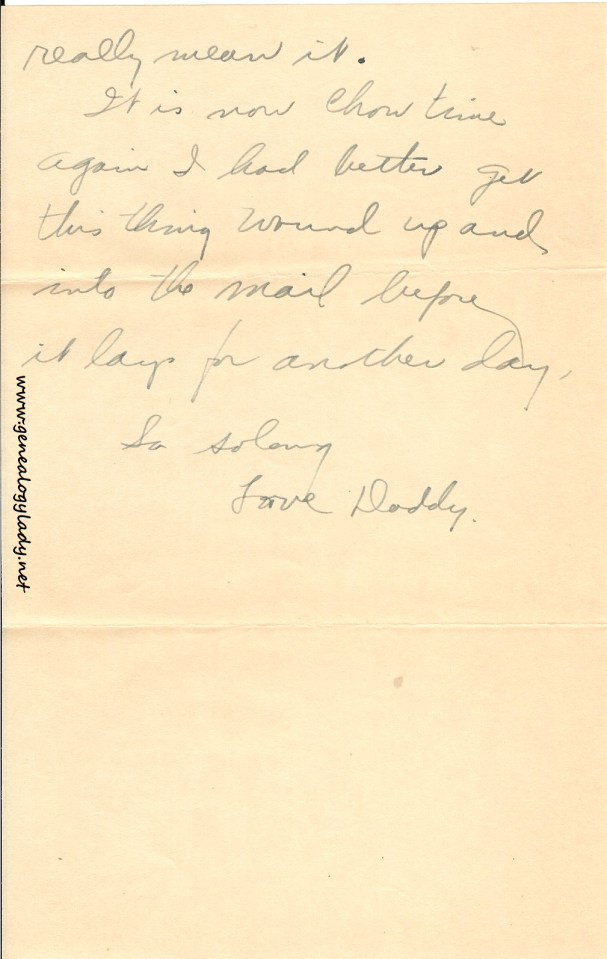 really mean it.
It is now Chow time
again I had better get
this thing wound up and
into the mail before
it lays for another day,
So solong
Love Daddy.
www.genealogylady.net